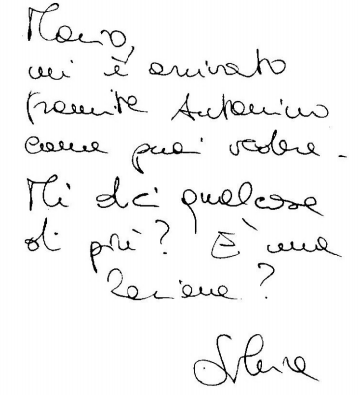 Mario,
mi è arrivato
tramite Antonino
come puoi vedere.
Mi dici qualcosa
di più? È una
lezione?